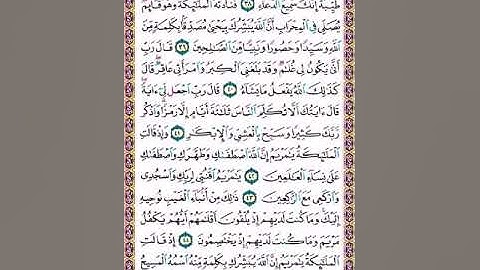 طَيِّبَةً إِنَّكَ سَمِيعُ الدُّعَاءِ ٣٨ فَنَادَتْهُ الْمَلَائِكَةُ وَهُوَ قَائِمٌ
يُصَلِّي فِي الْمِحْرَابِ أَنَّ اللَّهَ يُبَشِّرُكَ بِيَحْيَىٰ مُصَدِّقًا بِكَلِمَةٍ مِّنَ
اللَّهِ وَسَيِّدًا وَحَصُورًا وَنَبِيًّا مِّنَ الصَّالِحِينَ ٣٩ قَالَ رَبِّ
أَنَّىٰ يَكُونُ لِي غُلَامٌ وَقَدْ بَلَغَنِيَ الْكِبَرُ وَامْرَأَتِي عَاقِرٌ قَالَ
كَذَٰلِكَ اللَّهُ يَفْعَلُ مَا يَشَاءُ ٤٠ قَالَ رَبِّ اجْعَل لِّي آيَةً
قَالَ آيَتُكَ أَلَّا تُكَلِّمَ النَّاسَ ثَلَاثَةَ أَيَّامٍ إِلَّا رَمْزًا وَاذْكُر
رَّبَّكَ كَثِيرًا وَسَبِّحْ بِالْعَشِيِّ وَالْإِبْكَارِ ٤١ وَإِذْ قَالَتِ
الْمَلَائِكَةُ يَا مَرْيَمُ إِنَّ اللَّهَ اصْطَفَاكِ وَطَهَّرَكِ وَاصْطَفَاكِ
عَلَىٰ نِسَاءِ الْعَالَمِينَ ٤٢ يَا مَرْيَمُ اقْنُتِي لِرَبِّكِ وَاسْجُدِي
وَارْكَعِي مَعَ الرَّاكِعِينَ ٤٣ ذَٰلِكَ مِنْ أَنبَاءِ الْغَيْبِ نُوحِيهِ
إِلَيْكَ وَمَا كُنتَ لَدَيْهِمْ إِذْ يُلْقُونَ أَقْلَامَهُمْ أَيُّهُمْ يَكْفُلُ
مَرْيَمَ وَمَا كُنتَ لَدَيْهِمْ إِذْ يَخْتَصِمُونَ ٤٤ إِذْ قَالَتِ
الْمَلَائِكَةُ يَا مَرْيَمُ إِنَّ اللَّهَ يُبَشِّرُكِ بِكَلِمَةٍ مِّنْهُ اسْمُهُ الْمَسِيحُ